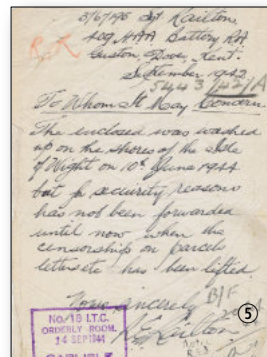 Sgt Railton
Battery RA
Guston, Dover, Kent.
September 1942
To Whom It May Concern
The enclosed was washed
up on the shores of the Isle
of Wight on 10th June 1944
but for security reasons
has not been forwarded
until now when the
censorship on parcels
letters etc has been lifted
Yours sincerely B/F
Railton
5
No. 18 I.T.C.
ORDERLY ROOM.
14 SEP 1944
CARLISLE